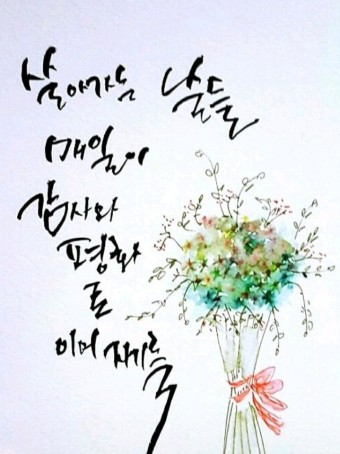 살아가는 날들
매일이
감사와
평화
로
이어지기를